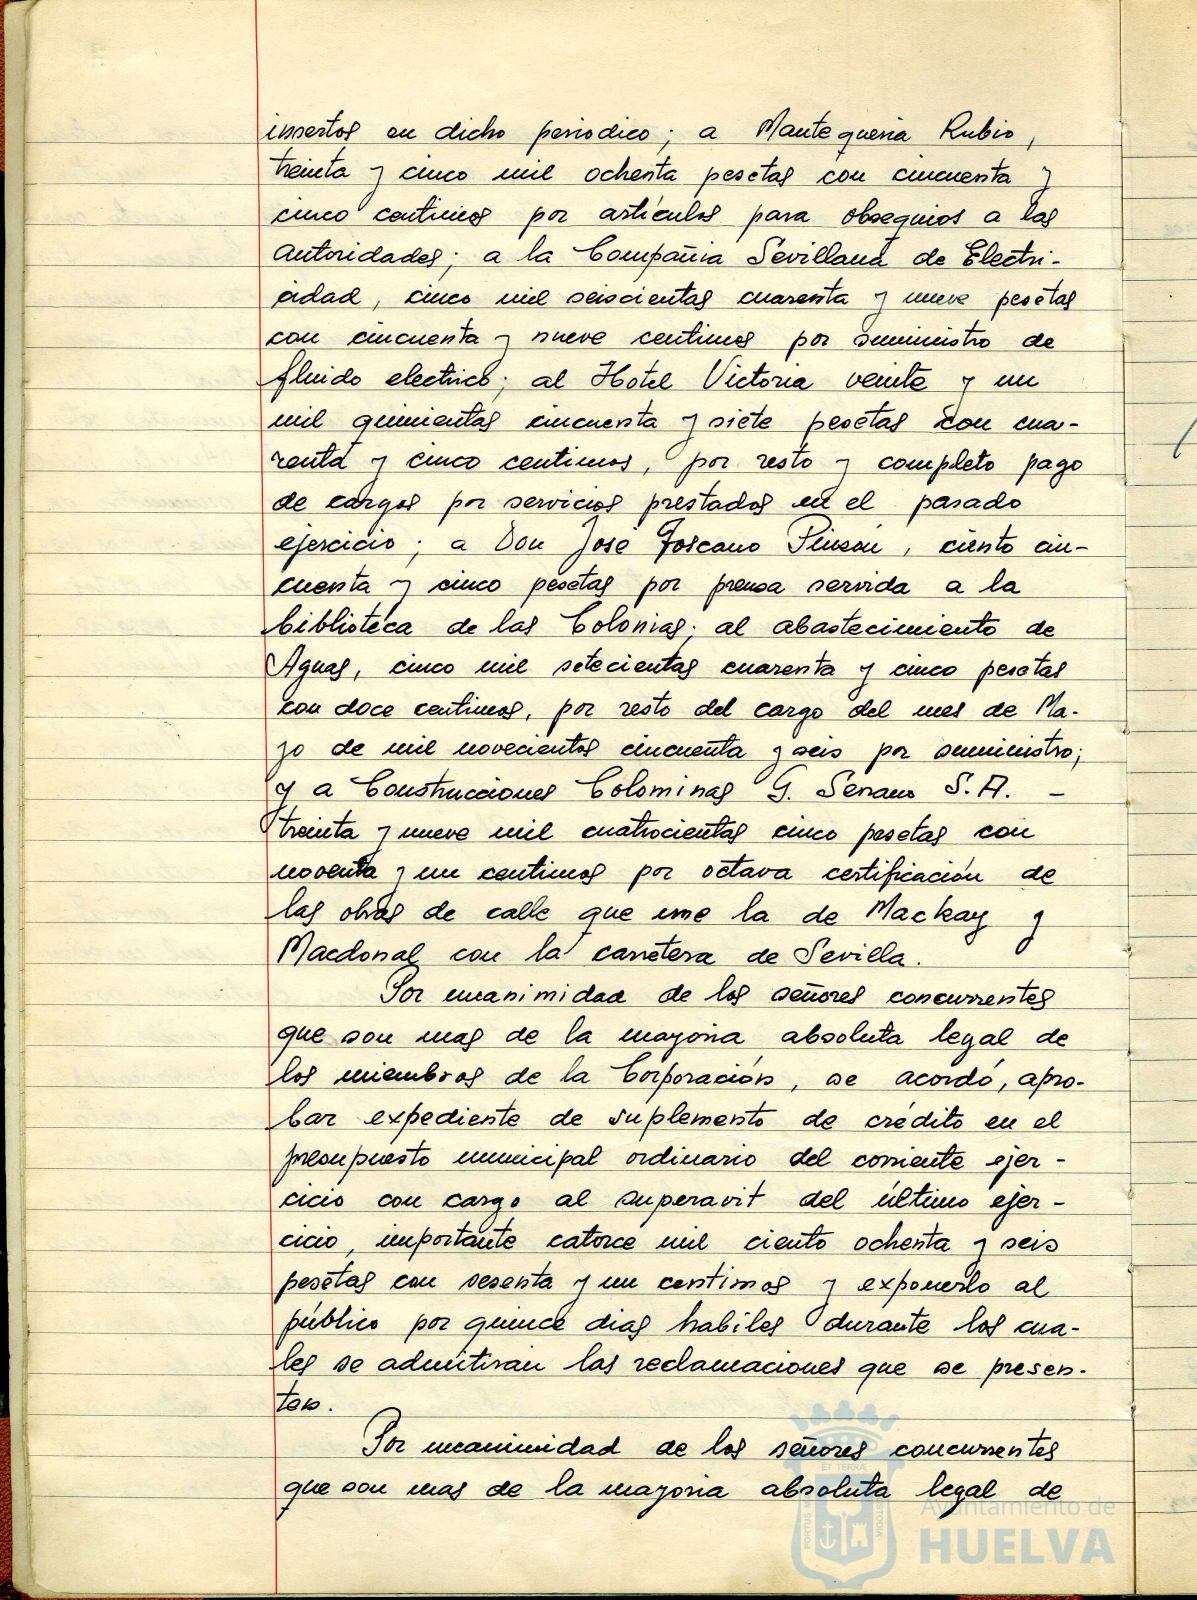 insertos en dicho periodico; a Mantequeria Rubio,
treinta y cinco mil ochenta pesetas con cincuenta y
cinco centimos por articulos para obsequios a las
autoridades; a la Compañia Sevillana de Electri-
cidad, cinco mil seiscientas cuarenta y nueve pesetas
con cincuenta y nueve centimos por suministro de
fluido electrico; al Hotel Victoria veinte y un
mil quinientas cincuenta y siete pesetas con cua-
renta y cinco centimos, por resto y completo pago
de cargos por servicios prestados en el pasado
ejercicio; a Don José Toscano Pinzón, ciento cin-
cuenta y cinco pesetas por prensa servida a la
biblioteca de las Colonias; al abastecimiento de
Aguas, cinco mil setecientas cuarenta y cinco pesetas
con doce centimos, por resto del cargo del mes de Ma-
yo de mil novecientos cincuenta y seis por suministro;
y a Construcciones Colominas G. Serrano S.A. -
treinta y nueve mil cuatrocientas cinco pesetas con
noventa y un centimos por octava certificación de
las obras de calle que une la de Mackay y
Macdonal con la carretera de Sevilla.
Por unanimidad de los señores concurrentes
que son mas de la mayoria absoluta legal de
los miembros de la Corporación, se acordó, apro-
bar expediente de suplemento de crédito en el
presupuesto municipal ordinario del corriente ejer-
cicio con cargo al superavit del último ejer-
cicio, importante catorce mil ciento ochenta y seis
pesetas con sesenta y un centimos y exponerlo al
público por quince dias habiles durante los cua-
les se admitiran las reclamaciones que se presen-
ten.
Por unanimidad de los señores concurrentes
que son mas de la mayoria absoluta legal de
Ayuntamiento de
HUELVA